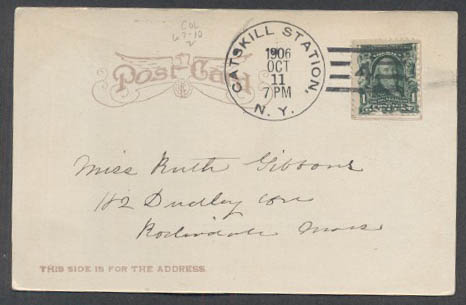 COL
67-10
2
Post Card
CATSKILL STATION,
N. Y.
1906
OCT
11
7 PM
1 1
Miss Ruth Gibbons
112 Dudley Ave
Roslindale Mass
THIS SIDE IS FOR THE ADDRESS.